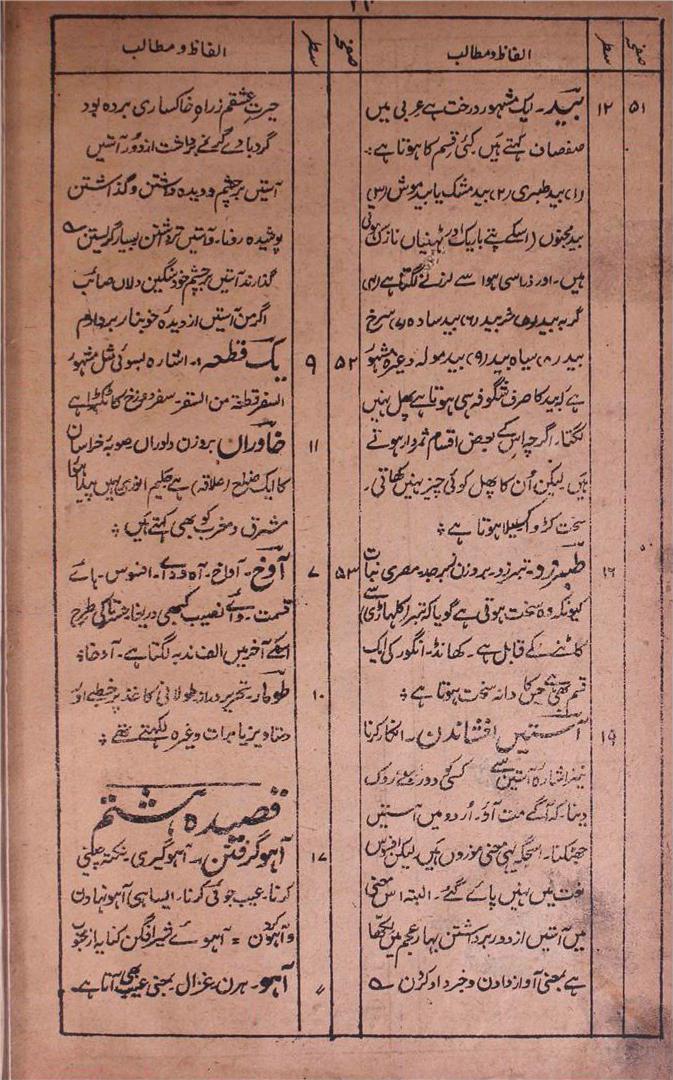 صفحہ سطر الفاظ و مطالب
۵۱ ۱۲ بید۔ ایک مشہور درخت ہے عربی میں
صفصاف کہتے ہیں۔ کئی قسم کا ہوتا ہے :۔
(۱) بید طبری (۲) بید مشک یا بید موش (۳)
بید مجنوں (اسکے پتے باریک اور ٹہنیاں نازک ہوتی
ہیں۔ اور ذراسی ہوا سے لرزنے لگتا ہے (۴)
گربہ بید (۵) خر بید (۶) بید سادہ (۷) سرخ
بید (۸) سیاہ بید (۹) بید مولہ وغیرہ مشہور
ہے کہ بید کا صرف شگوفہ ہی ہوتا ہے پھل نہیں
لگتا۔ اگرچہ اس کے بعض اقسام ثمردار ہوتے
ہیں لیکن اُن کا پھل کوئی چیز نہیں کھاتی۔
سخت کڑوا کسیلا ہوتا ہے ؞
۱۶ طبرزد۔ تبرزد۔ بروزن نبات مصری
کیونکہ وہ سخت ہوتی ہے گویا کہ تبر (کلہاڑی) سے
کاٹنے کے قابل ہے۔ کھانڈ۔ انگور کی ایک
قسم بھی ہے جس کا دانہ سخت ہوتا ہے ؞
۱۹ آستیں افشاندن۔ انکار کرنا
نیز اشارہ آستین سے کسی کو دور سے روک
دینا۔ کہ آگے مت آؤ۔ اردو میں آستیں
جھٹکنا۔ اسجگہ یہی معنی موزوں ہیں لیکن افسوس
لغت میں نہیں پائے گئے۔ البتہ اس معنی
میں آستیں از دور برداشتن بہار عجم میں لکھا
ہے بمعنی آواز دادن و خبردار کردن ؎
صفحہ سطر الفاظ و مطالب
حیرتِ عشقم ز راہِ خاکساری بردہ بود
گرد بادے گر نمے برداشت از دور آستیں
آستیں بر چشم و دیدہ داشتن و گذاشتن
پوشیدہ رونا۔ و آستیں تر داشتن بسیار گریستن ؎
گذارند آستیں بر چشم خود سنگین دلاں صائب
اگر من آستیں از دیدہ خونبار بردارم
۵۲ ۹ یک قطعہ:۔ اشارہ بسوئی مثل مشہور
السفر قطعۃ من السقر۔ سفر دوزخ کا ٹکڑا ہے
۱۱ خاوراں بروزن داوراں صوبہ خراسان
کا ایک ضلع (علاقہ) ہے حکیم انوری یہیں پیدا ہوا
مشرق و مغرب کو بھی کہتے ہیں ؞
۵۳ ۷ آوخ۔ آواخ۔ آہ و وائے۔ افسوس۔ ہائے
قسمت۔ وائے نصیب کبھی دریغا حسرتا کی طرح
اسکے آخر میں الف ندبہ لگتا ہے۔ آوخا؞
۱۰ طومار۔ تحریر دراز طولانی کاغذ پر خطبے اور
دستاویز یا مراسلات وغیرہ لکھتے تھے ؞
قصیدہ ہشتم
۱۷ آہو گرفتن۔ آہو گیری۔ نکتہ چینی
کرنا۔ عیب جوئی کرنا۔ ایسا ہی آہو نہادن
و آہو کردن = آہوئے شیر افگن کنایہ از محبوب
〃 آہو۔ ہرن۔ غزال۔ بمعنی عیب بھی آتا ہے۔